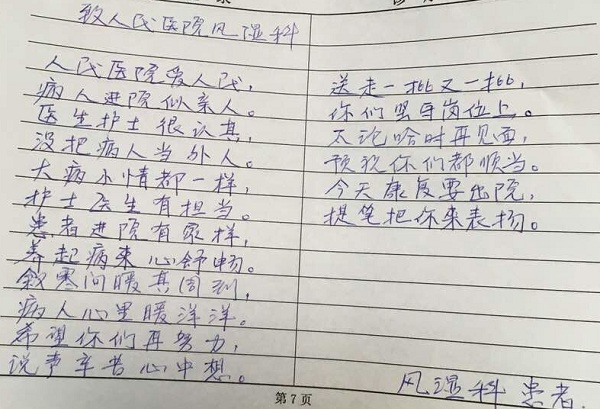 致人民医院风湿科
人民医院爱人民，
病人进院似亲人。
医生护士很认真，
没把病人当外人。
大病小情都一样，
护士医生有担当。
患者进院有家样，
养起病来心舒畅。
叙寒问暖真周到，
病人心里暖洋洋。
希望你们再努力，
说声辛苦心中想。
送走一批又一批，
你们坚守岗位上。
不论啥时再见面，
预祝你们都顺当。
今天康复要出院，
提笔把你来表扬。
风湿科 患者.
第7页